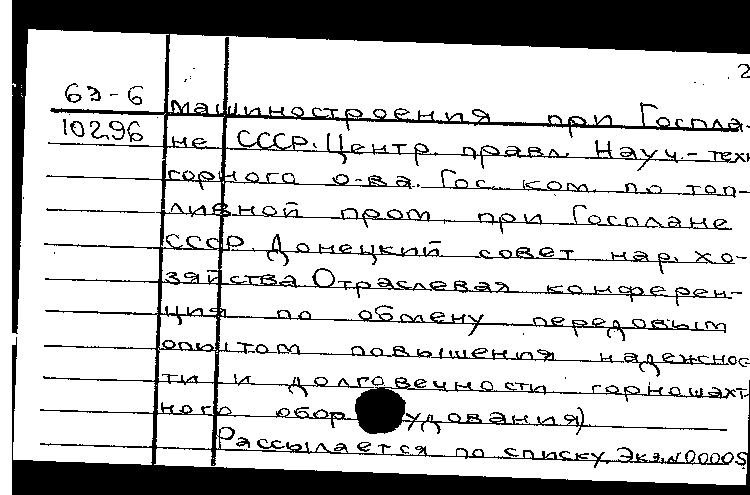 2
6Э-6 машиностроения при Госпла-
10296 не СССР. Центр. правл. Науч.-техн
горного о-ва. Гос. ком. по топ-
ливной пром. при Госплане
СССР. Донецкий совет нар. хо-
зяйства Отраслевая конферен-
ция по обмену передовым
опытом повышения надежнос
ти и долговечности горношахт
ного оборудования)
Рассылается по списку. Экз.N00005